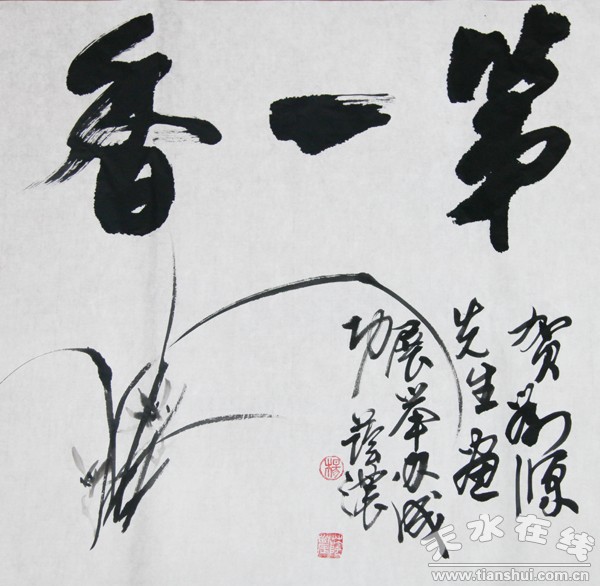 第一香
贺劉源
先生畫
展举办成
功 蔭濃
楊
天水在线
www.tianshui.com.cn